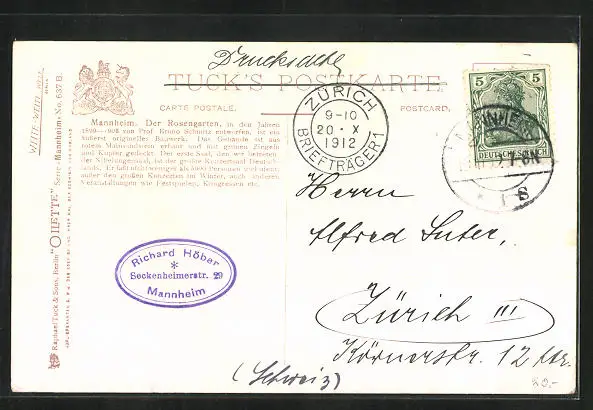 Drucksache
TUCK'S POSTKARTE
CARTE POSTALE.
POSTCARD.
Mannheim. Der Rosengarten, in den Jahren
1899—1903 von Prof. Bruno Schmitz entworfen, ist ein
äußerst originelles Bauwerk. Das Gebäude ist aus
rotem Mainsandstein erbaut und mit grünen Ziegeln
und Kupfer gedeckt. Der erste Saal, den wir betreten
der Nibelungensaal, ist der größte Konzertsaal Deutsch-
lands. Er faßt nicht weniger als 5000 Personen und dient,
außer den großen Konzerten im Winter, auch anderen
Veranstaltungen wie Festspielen, Kongressen etc.
Raphael Tuck & Sons, Berlin "OILETTE" Serie "Mannheim" No. 637 B.
ZÜRICH
9-10
20 · X
1912
BRIEFTRÄGER 1
5 5
DEUTSCHES REICH
MANNHEIM
Herrn
Alfred Suter,
Zürich III
Körnerstr. 12
(Schweiz)
Richard Höber
*
Seckenheimerstr. 29
Mannheim
20.-